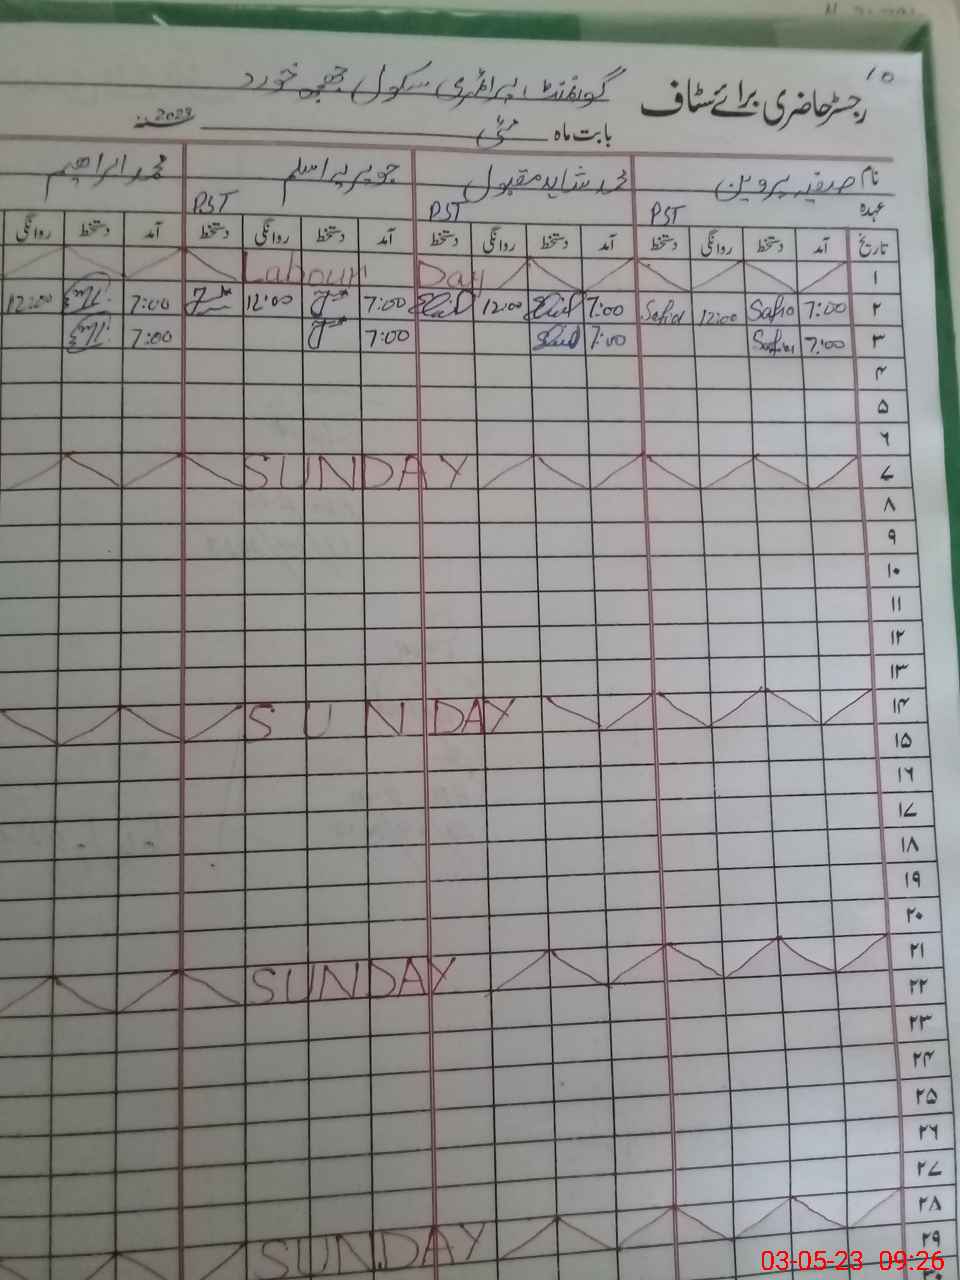 ۱۰
گورنمنٹ پرائمری سکول خورد
رجسٹر حاضری برائے سٹاف
بابت ماہ مئی 2023
نام صفیہ پروین محمد شاہد مقبول جویریہ اسلم محمد ابراہیم
عہدہ PST PST PST
تاریخ آمد دستخط روانگی دستخط آمد دستخط روانگی دستخط آمد دستخط روانگی دستخط آمد دستخط روانگی
۱ Labour Day
۲ 7:00 Safia 12:00 Safia 7:00 12:00 7:00 12:00 7:00 12:00
۳ 7:00 Safia 7:00 7:00 7:00
۴
۵
۶
۷ SUNDAY
۸
۹
۱۰
۱۱
۱۲
۱۳
۱۴ SUNDAY
۱۵
۱۶
۱۷
۱۸
۱۹
۲۰
۲۱ SUNDAY
۲۲
۲۳
۲۴
۲۵
۲۶
۲۷
۲۸ SUNDAY
۲۹
۳۰
03-05-23 09:26